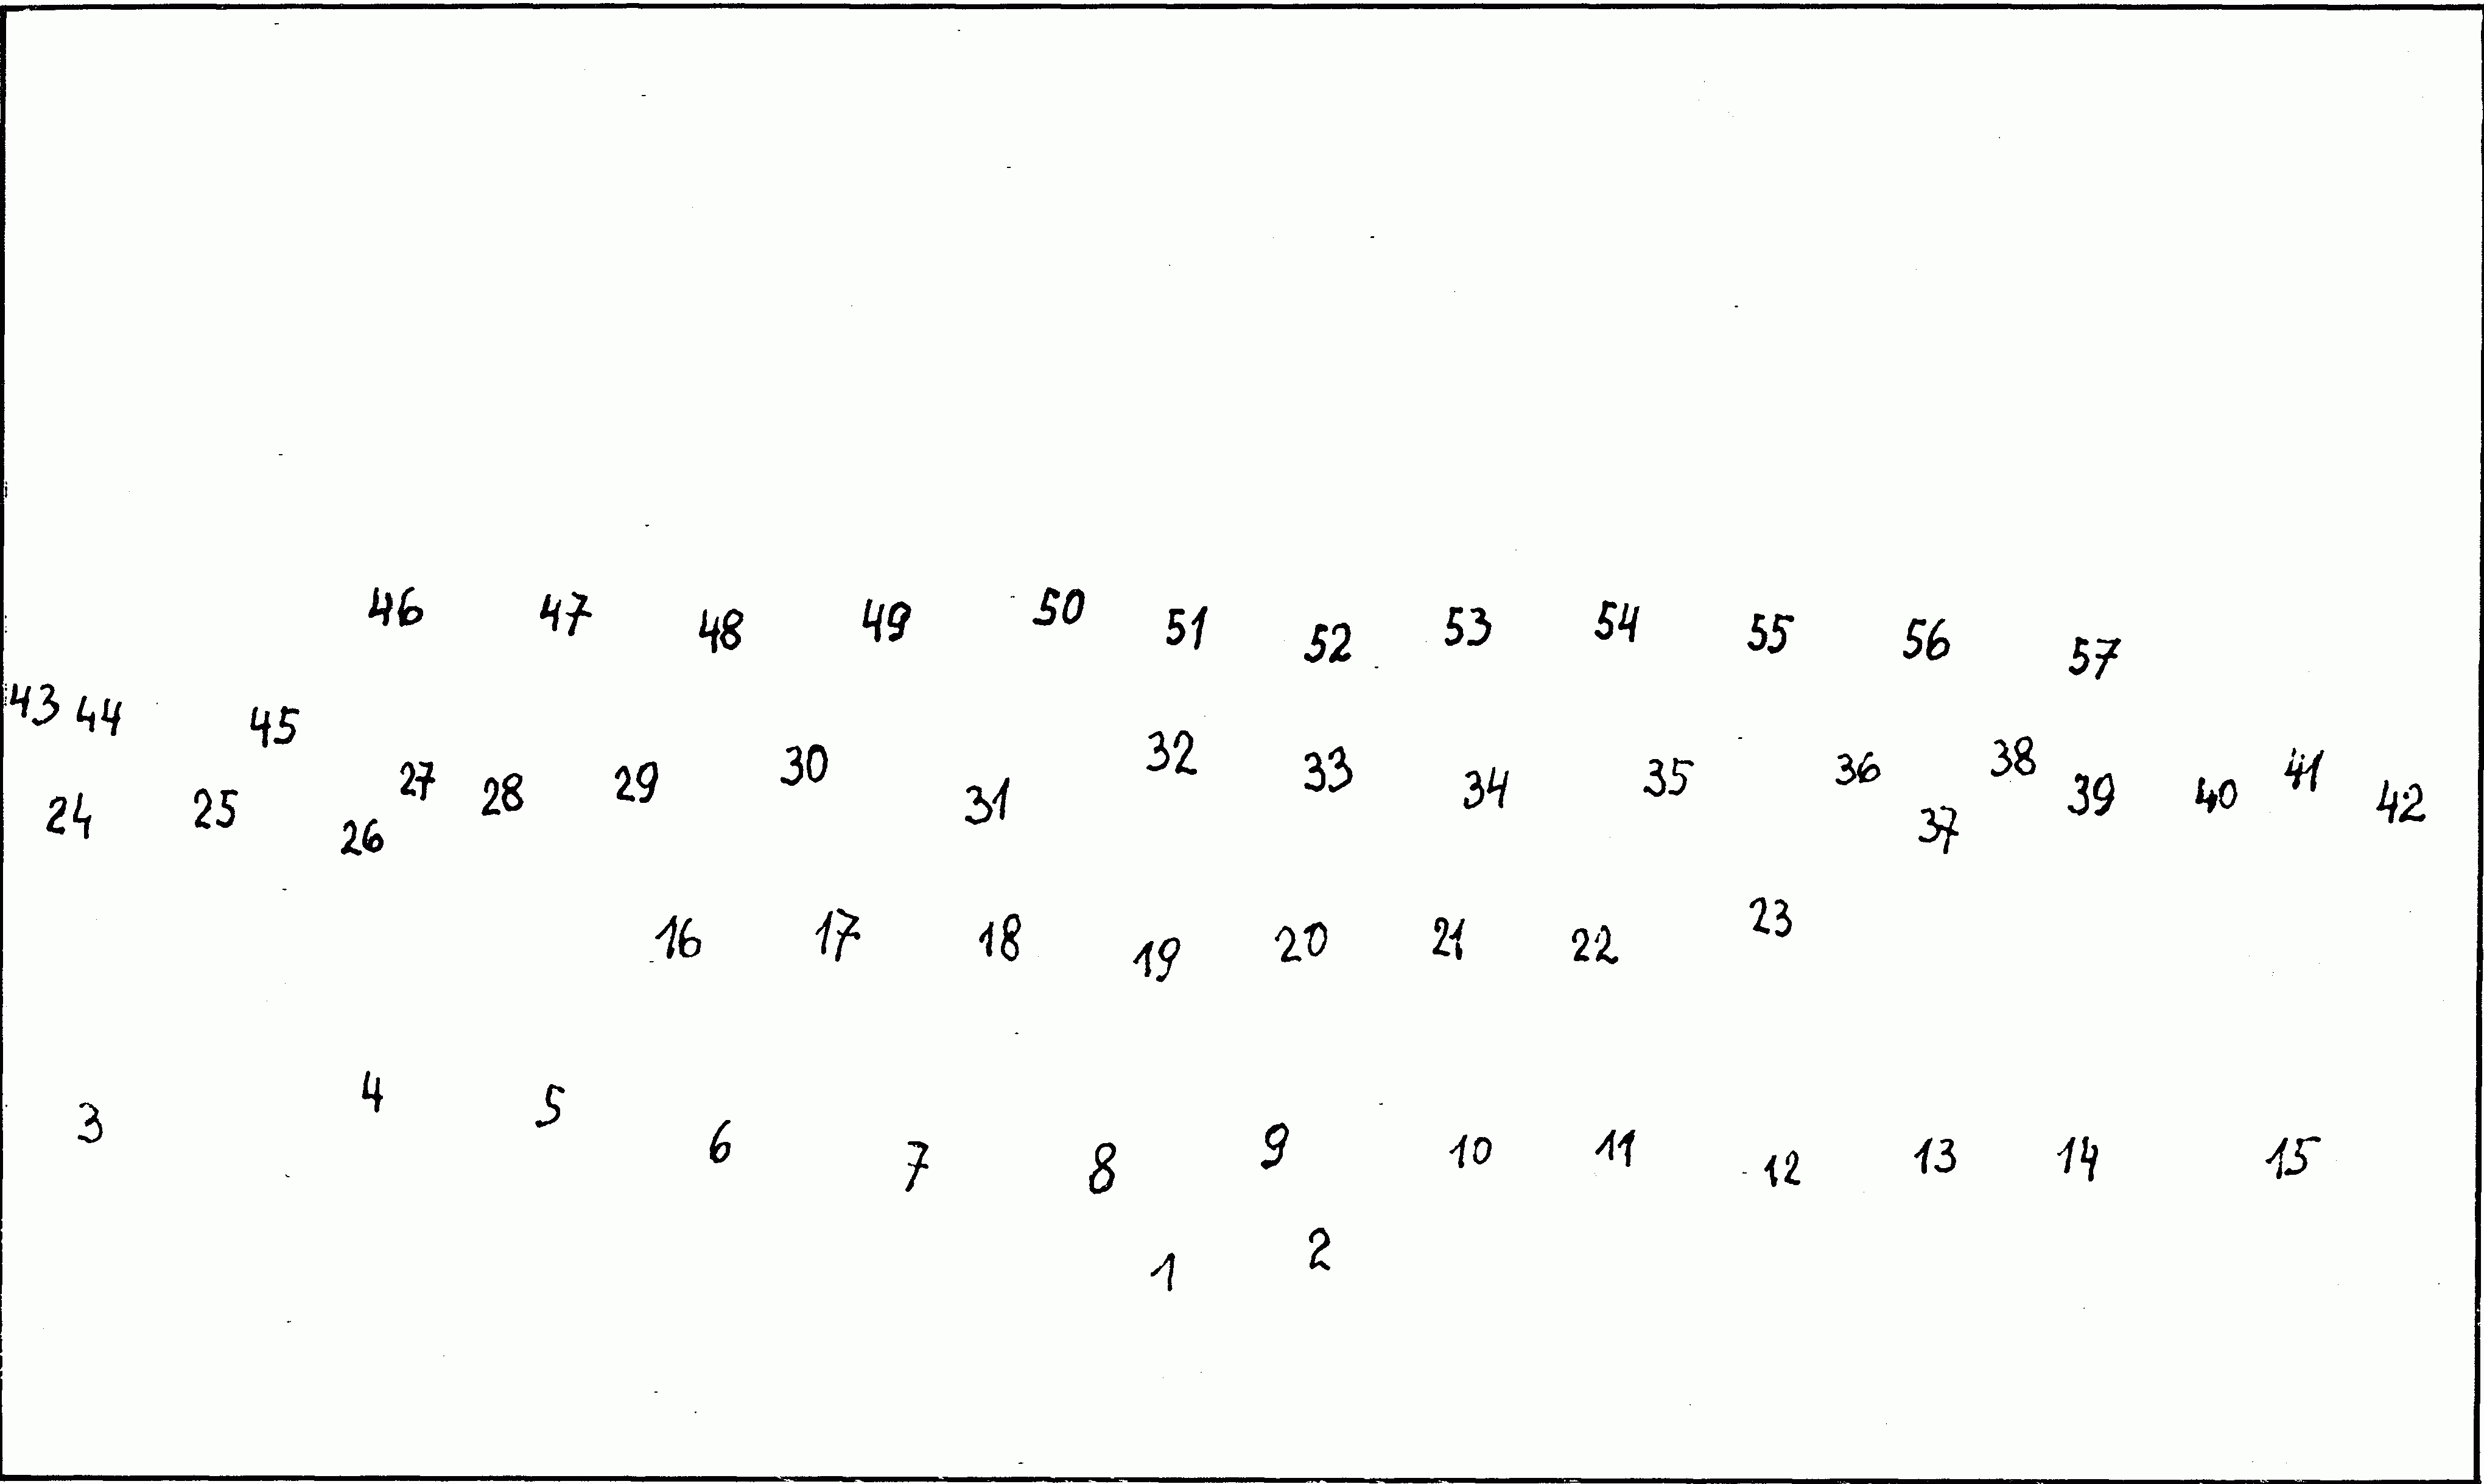 46 47 48 49 50 51 52 53 54 55 56 57
43 44 45
24 25 26 27 28 29 30 31 32 33 34 35 36 37 38 39 40 41 42
16 17 18 19 20 21 22 23
3 4 5 6 7 8 9 10 11 12 13 14 15
1 2